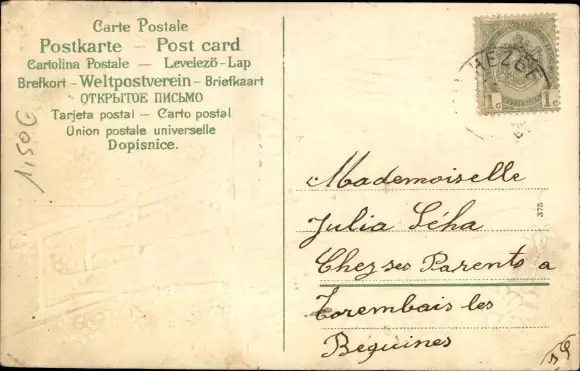 Carte Postale
Postkarte — Post card
Cartolina Postale — Levelező-Lap
Brefkort - Weltpostverein - Briefkaart
ОТКРЫТОЕ ПИСЬМО
Tarjeta postal — Carto postal
Union postale universelle
Dopisnice.
1,50€
1c 1c
375
Mademoiselle
Julia Séha
Chez ses Parents a
Torembais les
Béguines